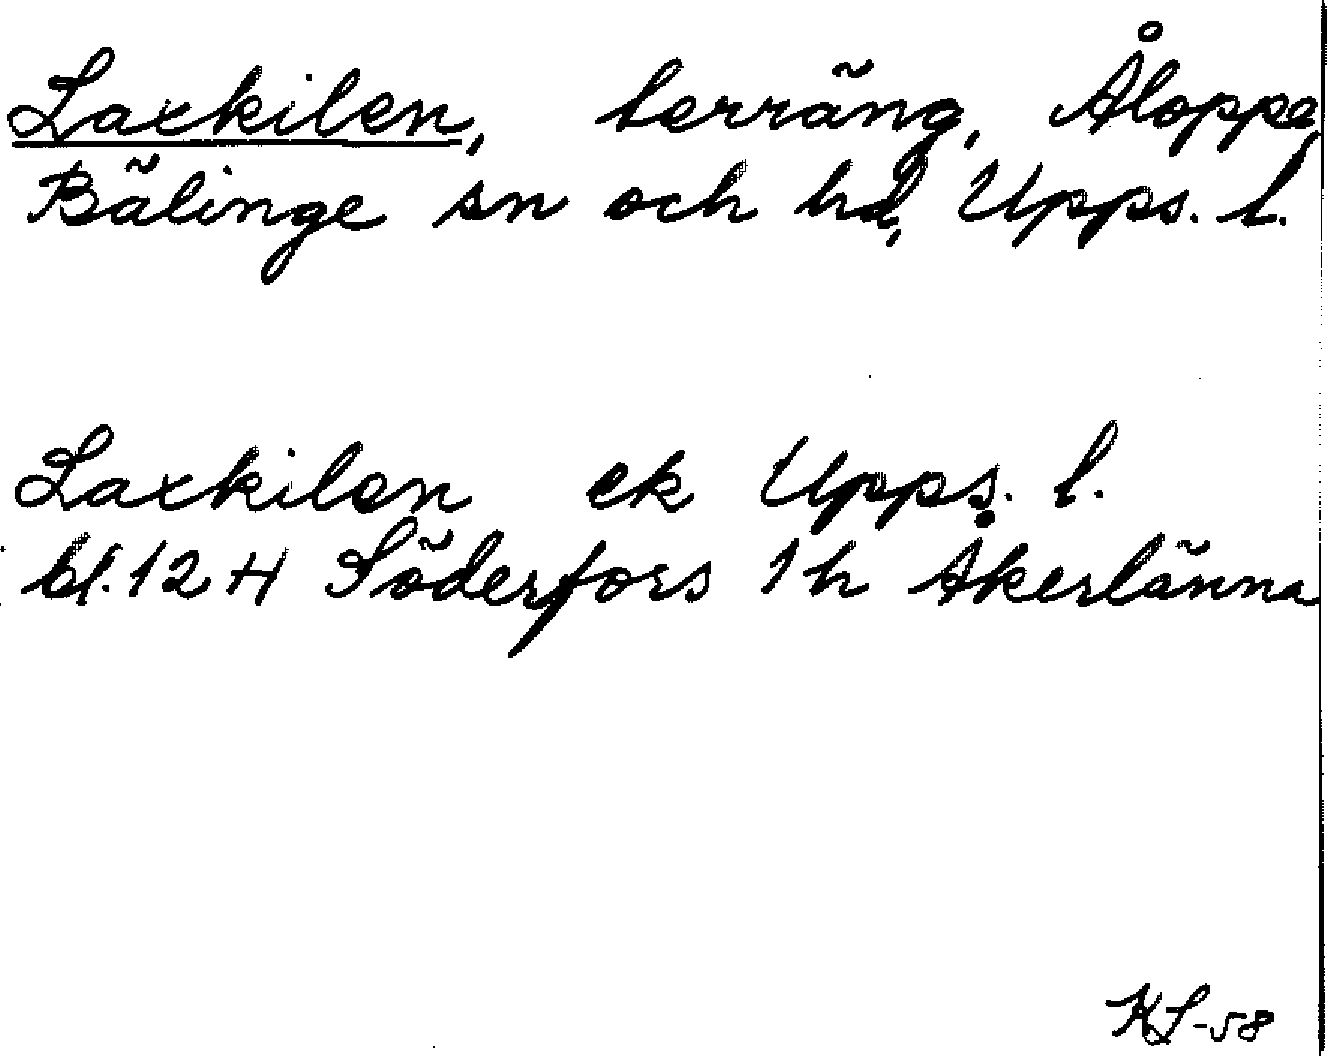 Laxkilen, terräng, Åloppe,
Bälinge sn och hd, Upps. l.
Laxkilen ek Upps. l.
bl. 12 H Söderfors 1 h Åkerlänna
KL-58